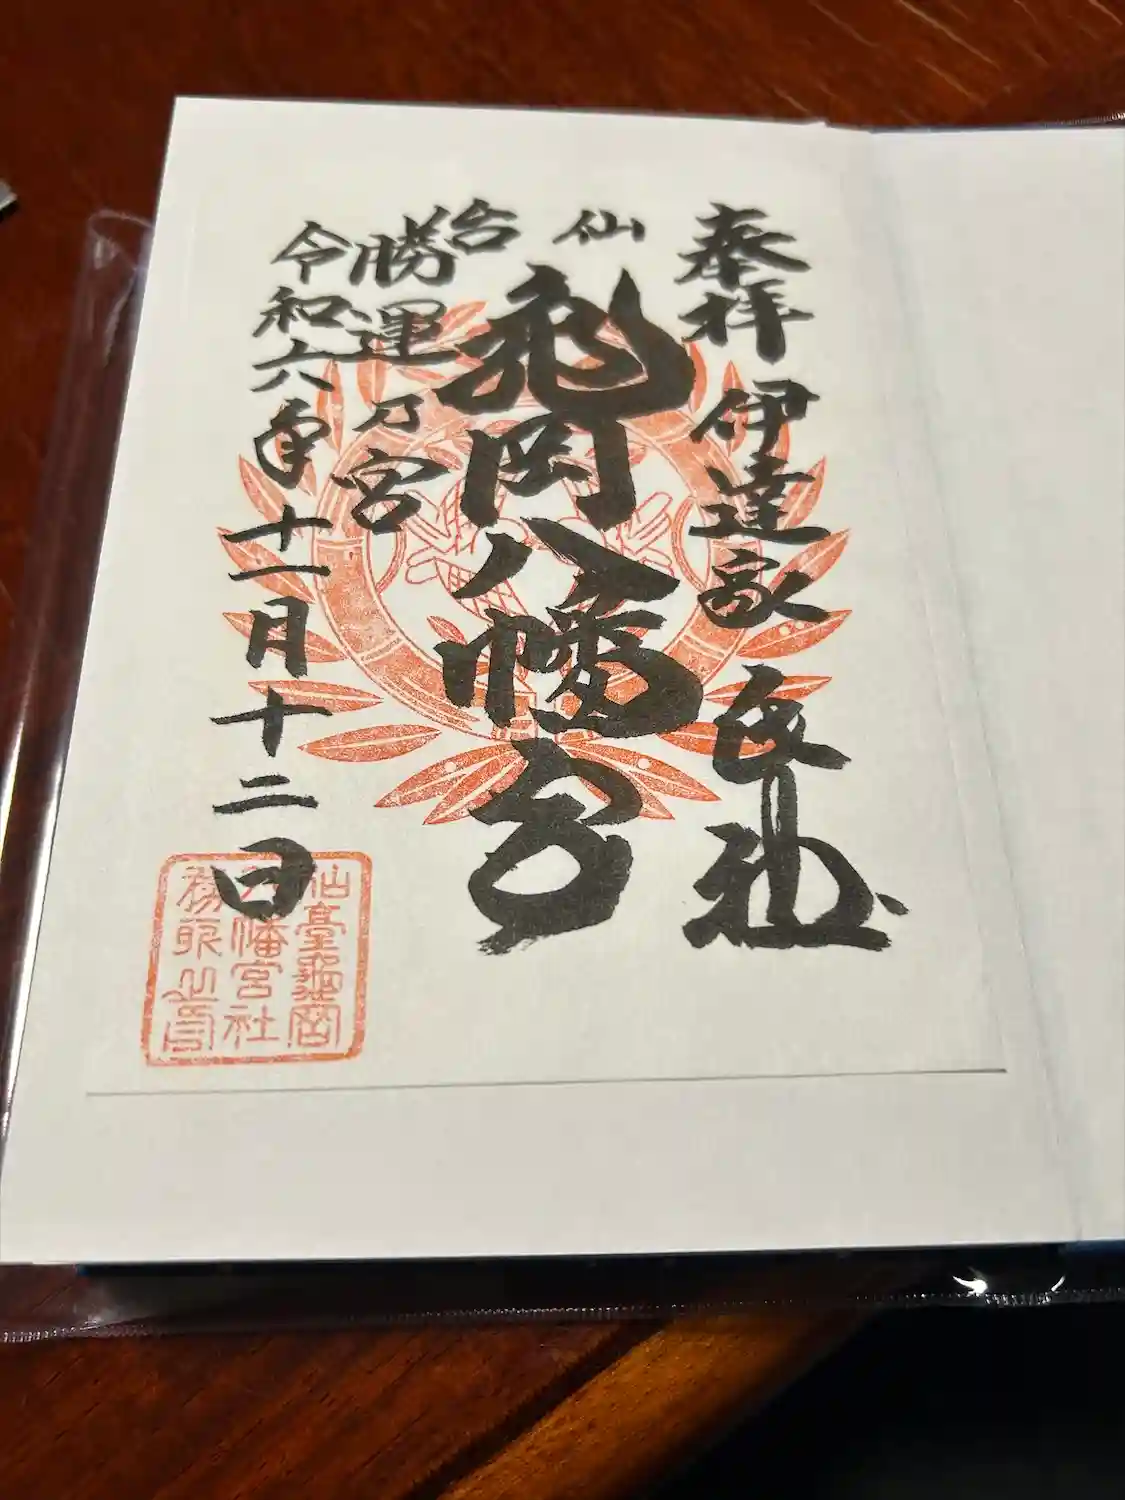 奉拝 伊達家 氏神
仙台
亀岡八幡宮
勝運乃宮
令和六年十一月十二日
仙臺龜岡
八幡宮社
務所之印